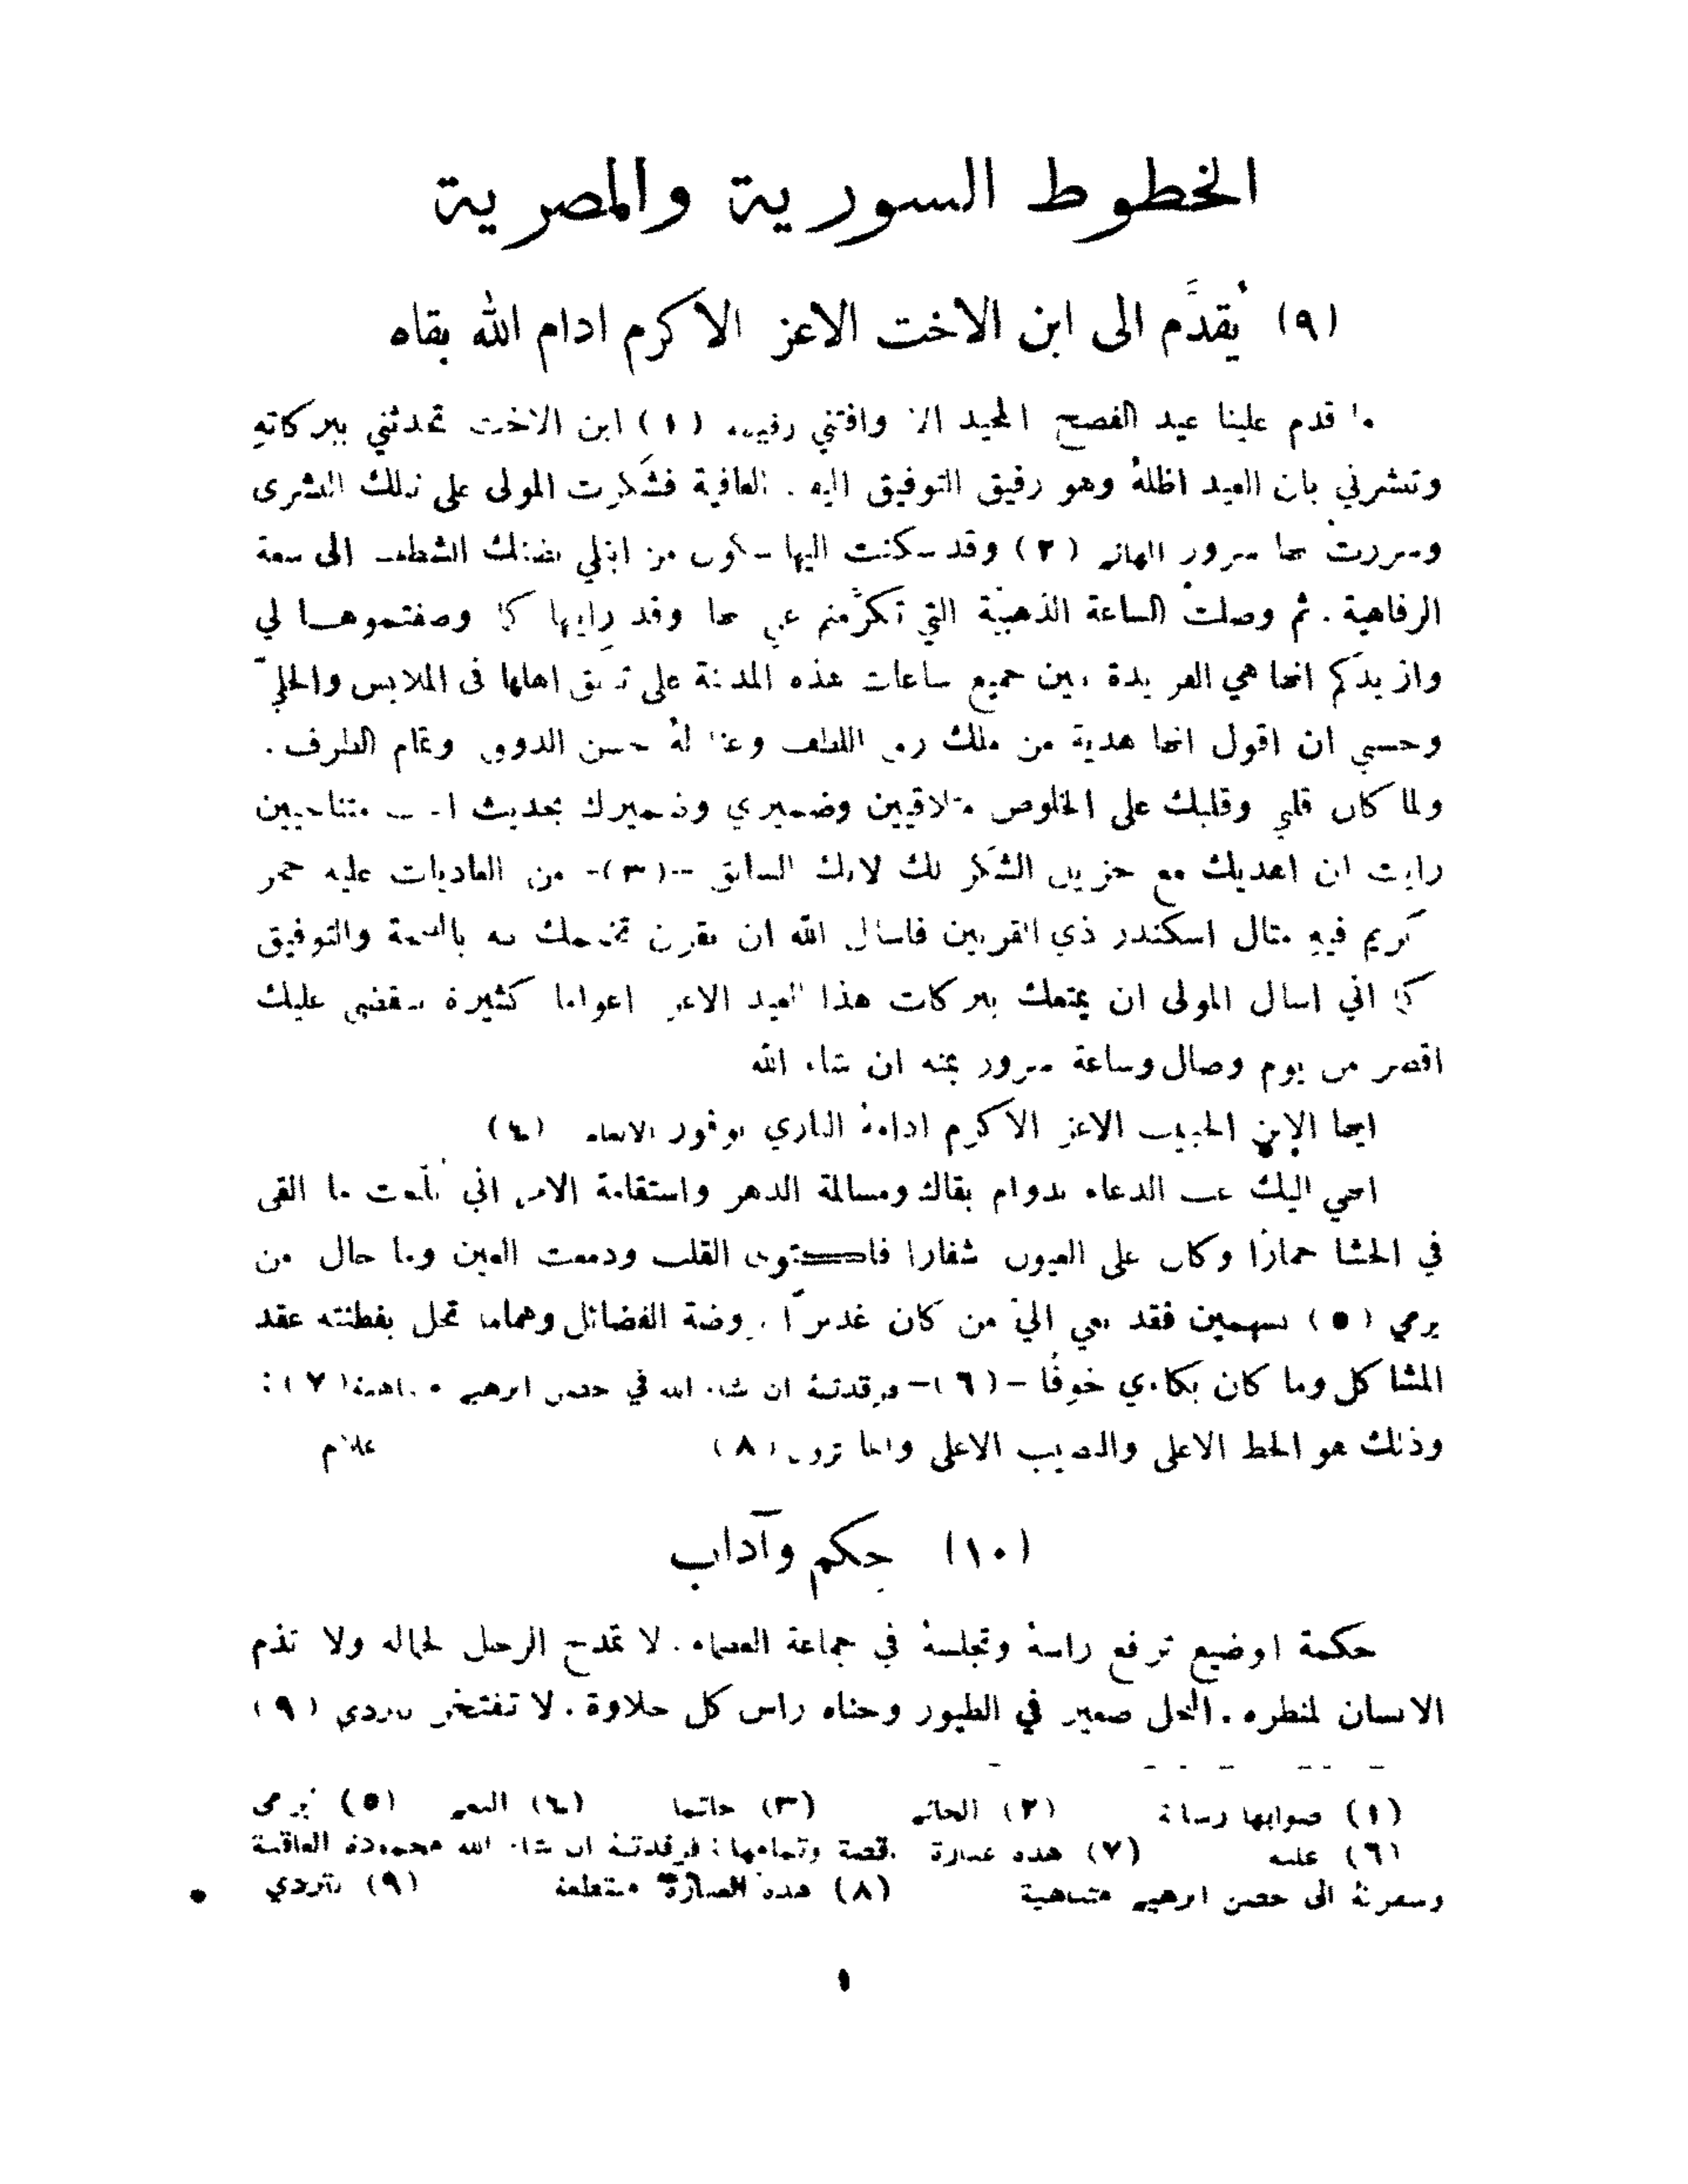 الخطوط السورية والمصرية
(٩) يُقدَّم الى ابن الاخت الاعز الاكرم ادام الله بقاه
قدم علينا عيد الفصح المجيد وافتني (١) ابن الاخت تحدثني ببركاته
وتبشرني بان العيد اظلهُ وهو رفيق التوفيق اليه . العافية فشكرت المولى على تلك البشرى
وسررت بها سرور الهانم (٢) وقد سكنت اليها سكون من الى سعة
الرفاهية . ثم وصلت الساعة الذهبيّة التي تكرّمتم بها وقد رايتها كما وصفتموها لي
وازيدكم انها هي الفريدة بين جميع ساعات هذه المدينة على اهلها في الملابس والحليّ
وحسبي ان اقول انها هدية من ملك اللطف لهُ حسن الذوق وتمام الظرف .
ولما كان قلبي وقلبك على الخلوص متلاقيين وضميري وضميرك بحديث متناجيين
رايت ان اهديك مع جزيل الشكر لك السابق -(٣)- من العاديات عليه حجر
كريم فيهِ مثال اسكندر ذي القرنين فاسال الله ان يقرن به والتوفيق
كما اني اسال المولى ان يمتعك ببركات هذا العيد الاغر اعواما كثيرة عليك
اقصر من يوم وصال وساعة سرور بمنه ان شاء الله
ايها الابن الحبيب الاعز الاكرم ادامهُ الباري (٤)
اليك الدعاء بدوام بقاك ومسالمة الدهر واستقامة الامر اني ما القى
في الحشا جمارًا وكان على العيون شفارا فاكتوى القلب ودمعت العين وما حال من
يرمي (٥) بسهمين فقد نعي اليّ من كان روضة الفضائل وهماما تحل بفطنته عقد
المشاكل وما كان بكاءي خوفًا -(٦)- ان شاء الله في حضن ابرهيم (٧) :
وذلك هو الحظ الاعلى والنصيب الاعلى (٨) علام
(١٠) حِكم وآداب
حكمة اوضيع ترفع راسهُ وتجلسهُ في جماعة العظماء . لا تمدح الرجل لجماله ولا تذم
الانسان لمنظره . النحل صغير في الطيور وجناه راس كل حلاوة . لا تفتخر (٩)
(١) صوابها رسالة (٢) الهائم (٣) خاتما (٤) النعم (٥) يُرمى
(٦) عليه (٧) هذه عبارة وتمامها : ان شاء الله محمودة العاقبة
الى حضن ابرهيم (٨) هذه العبارة (٩) بتردي
١